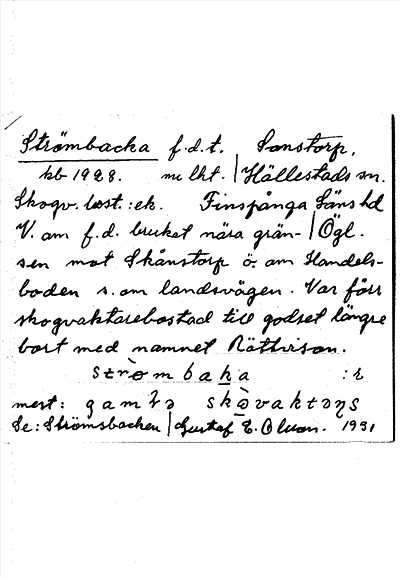 Strömbacka f.d.t. Sonstorp,
kb 1928. nu lht. | Hällestads sn.
Skogv. bost. : ek. Finspånga läns hd
V. om f.d. bruket nära grän- | Ögl.
sen mot Skånstorp ö. om Handels-
boden s. om landsvägen. Var förr
skogvaktarebostad till godset längre
bort med namnet Rättvison.
stròmbaka :r
mest: gamɫə skòvaktəȵs
Se: Strömsbacken | Gustaf E. Olsson. 1931